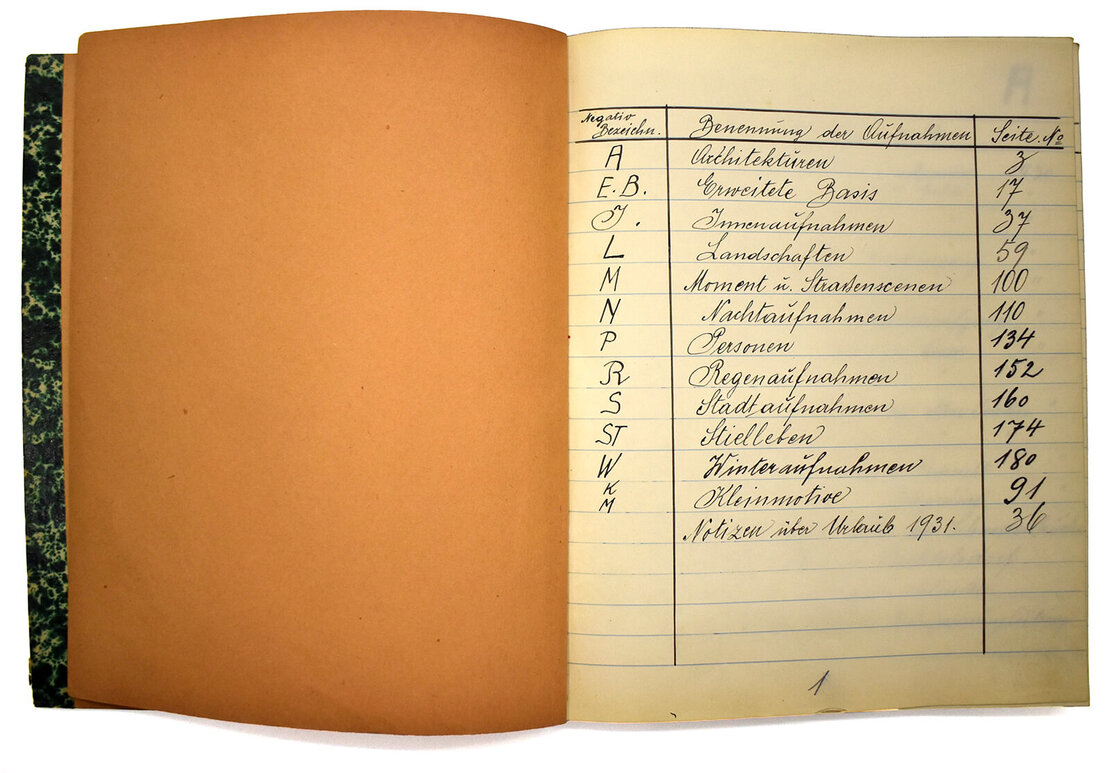 Negativ Bezeichn. Benennung der Aufnahmen Seite. No
A Architekturen 3
E.B. Erweitete Basis 17
J. Innenaufnahmen 37
L Landschaften 59
M Moment u. Straßenscenen 100
N Nachtaufnahmen 110
P Personen 134
R Regenaufnahmen 152
S Stadtaufnahmen 160
ST Stielleben 174
W Winteraufnahmen 180
K M Kleinmotive 91
Notizen über Urlaub 1931. 36
1